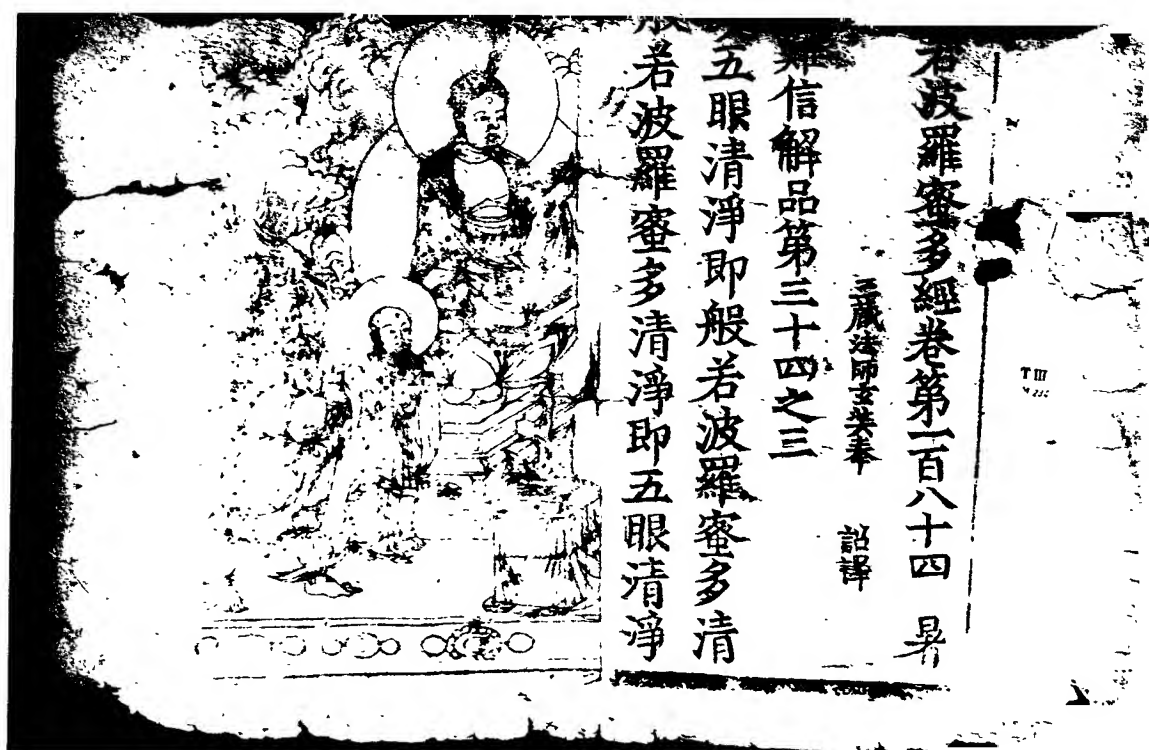 若波羅蜜多經卷第一百八十四 昃
三藏法師玄奘奉 詔譯
難信解品第三十四之三
五眼清淨即般若波羅蜜多清
般若波羅蜜多清淨即五眼清淨
T III